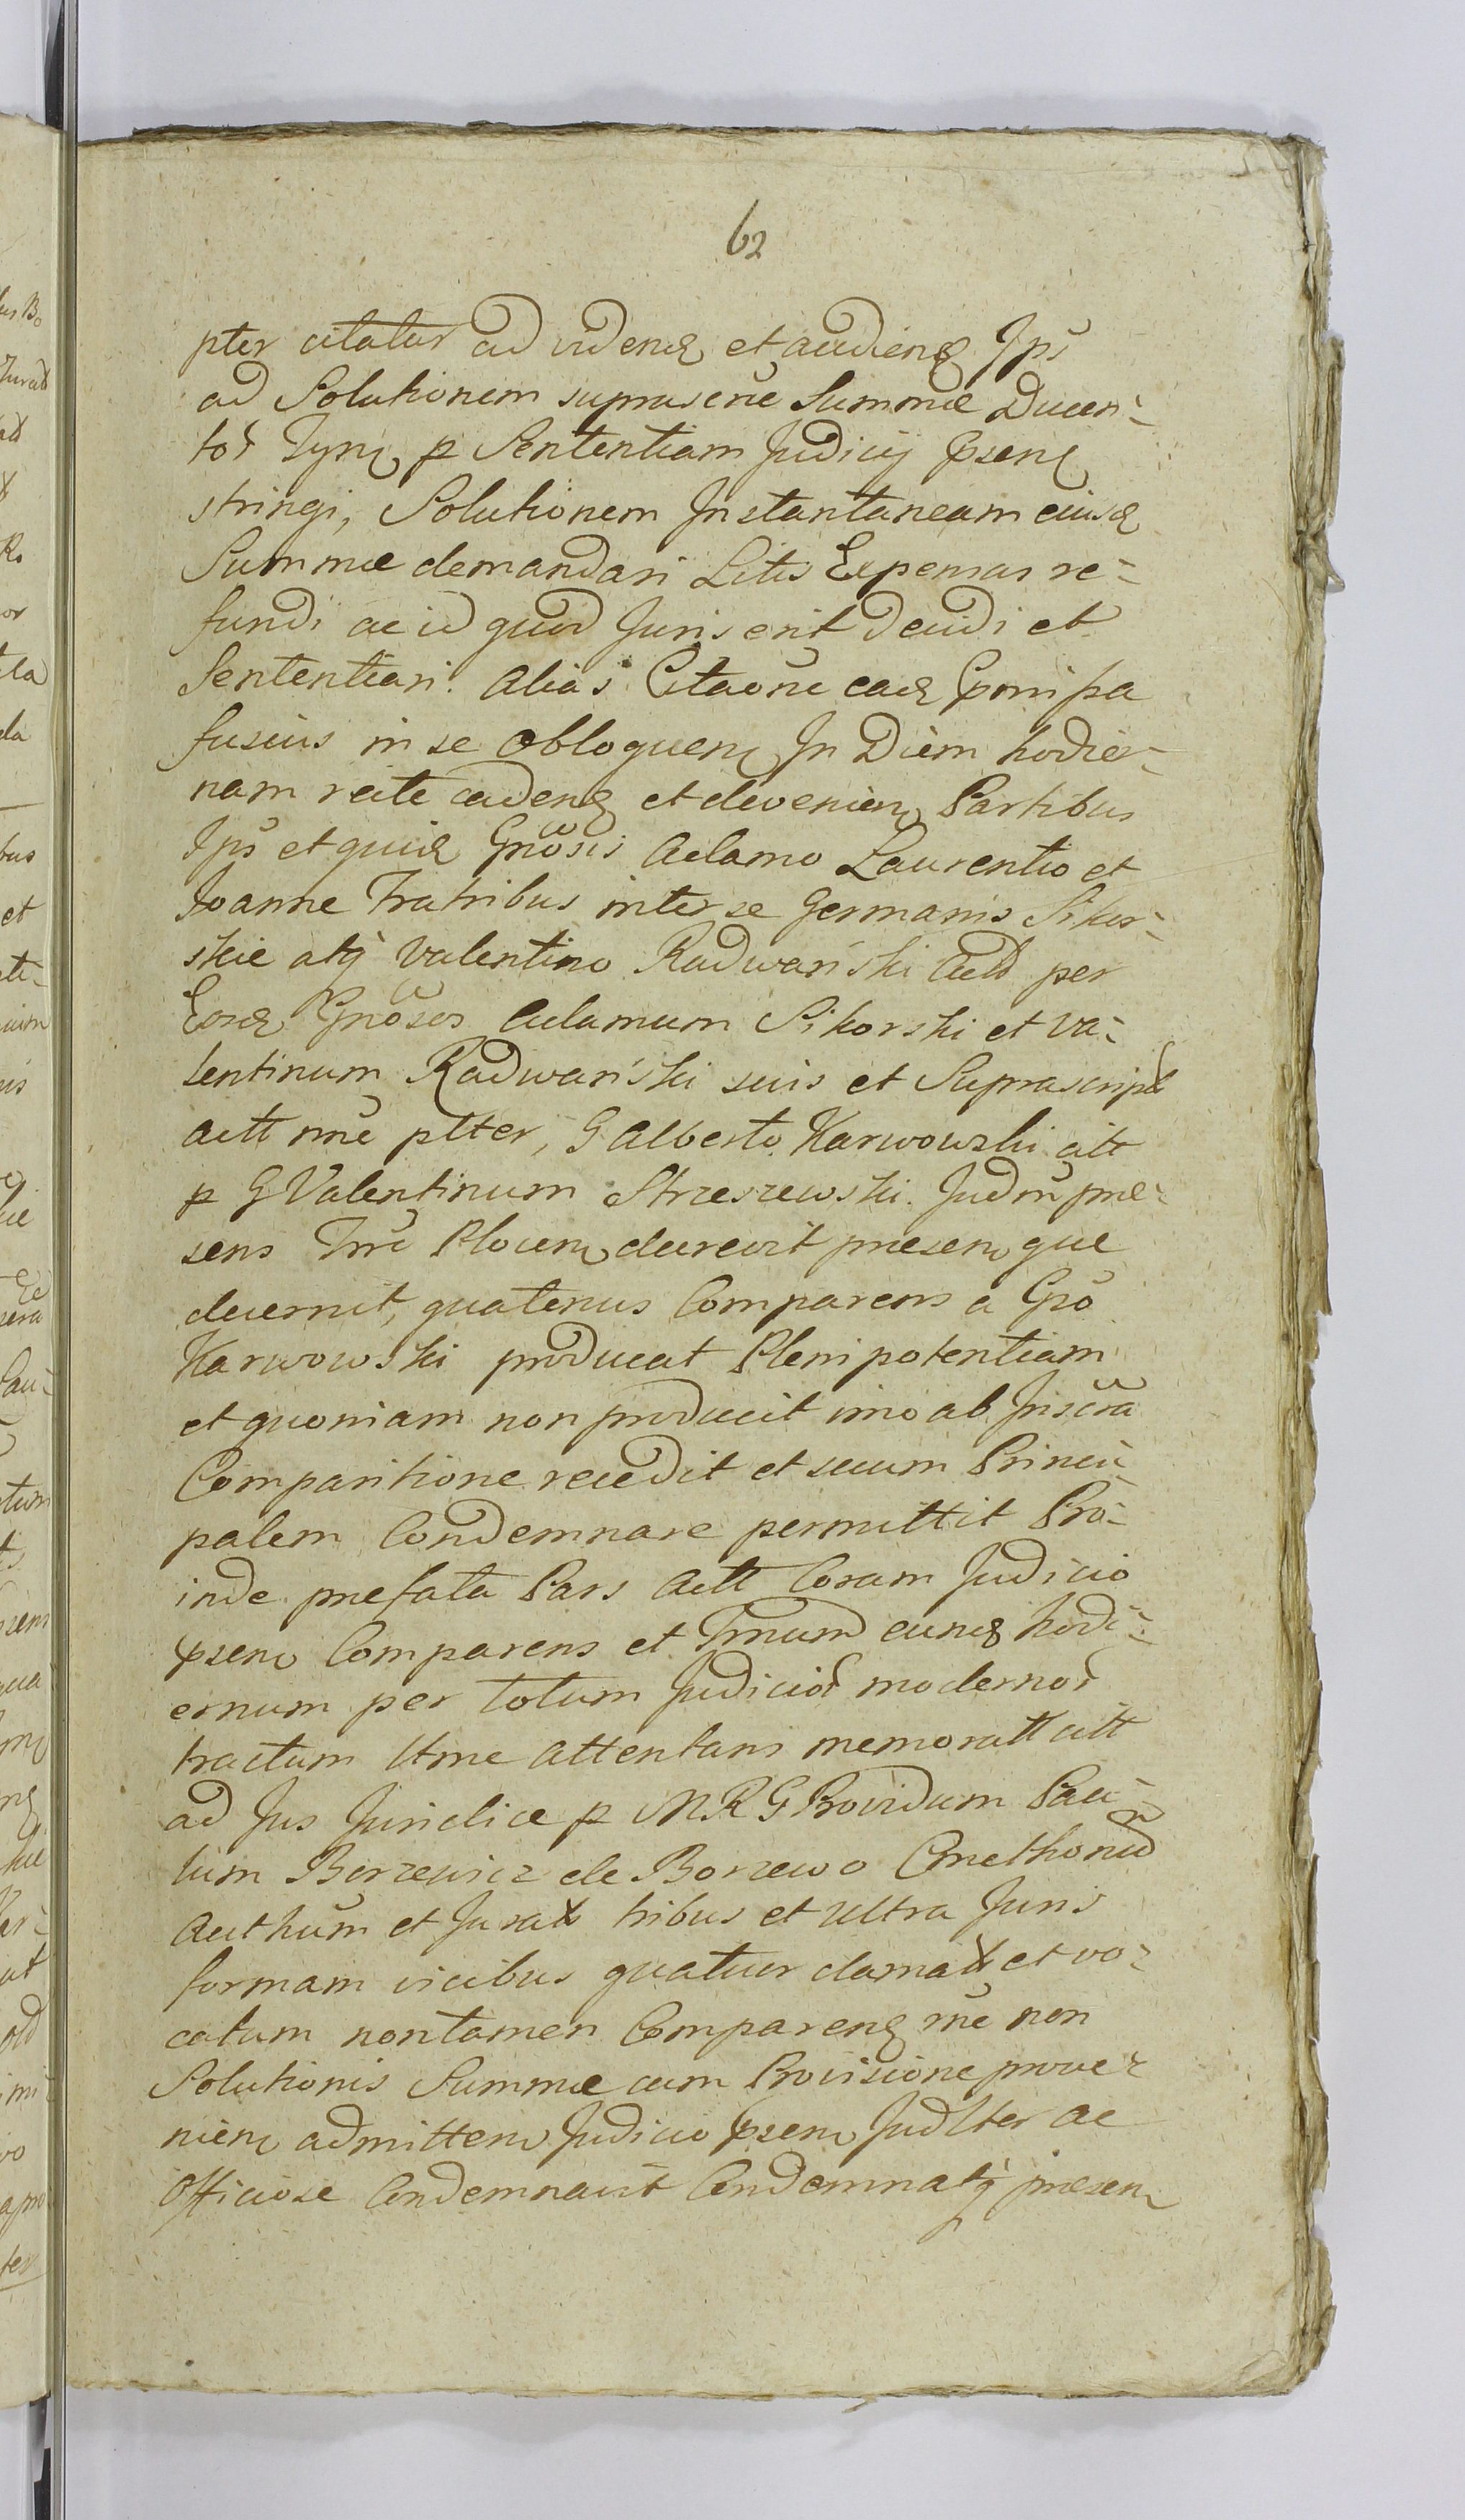 62
pter citatur ad videnđ et audienđ Ips
ad Solutionem suprascrĩe Summæ Ducen-
tor Tynf p Sententiam Judicij Ppsenf
stringi, Solutionem Instantaneam eiusđ
Summæ demandari Litis Expensas re-
fundi ac id quod Juris erit decidi et
Sententiari. Alias Citaõne eađ
fusius in se Obloquen In Diem hodier-
nam recte cadenđ et devenien Partibus
Ips et quiđ Gnõsis Adamo Laurentio et
Joanne Fratribus inter se Germanis Sikor-
skie atq Valentino Radwański Actt per
Eosđ Gnõsos Adamum Sikorski et Va-
lentinum Radwański suis et Suprascript
actt nñe pltter, G Alberto Karwowski citt
p G Valentinum Strzeszewski. Judm præ-
sens Trrĩ Plocen decrevit præsen que
decernit, quatenus Comparens a Gso
Karwowski producat Plenipotentiam
et quoniam non producit imo ab Inscra
Comparitione recedit et suum Princi-
palem Condemnare permittit Pro-
inde præfata Pars Actt Coram Judicio
Ppsen Comparens et Trnum eunđ hodi-
ernum per totum Judicior modernor
tractum Ttme attentans memoratt citt
ad Jus Juridice p M R G Providum Pau-
lum Borzewicz de Borzewo Cmethonem
Authum et Jurat tribus et Ultra Juris
formam vicibus quatuor clamat et vo-
catum non tamen Comparenđ nẽ non
Solutionis Summæ cum Provisione prove-
nien admitten Judicio Ppsen Judlter ac
Officiose Condemnavit Condemnatq præsen